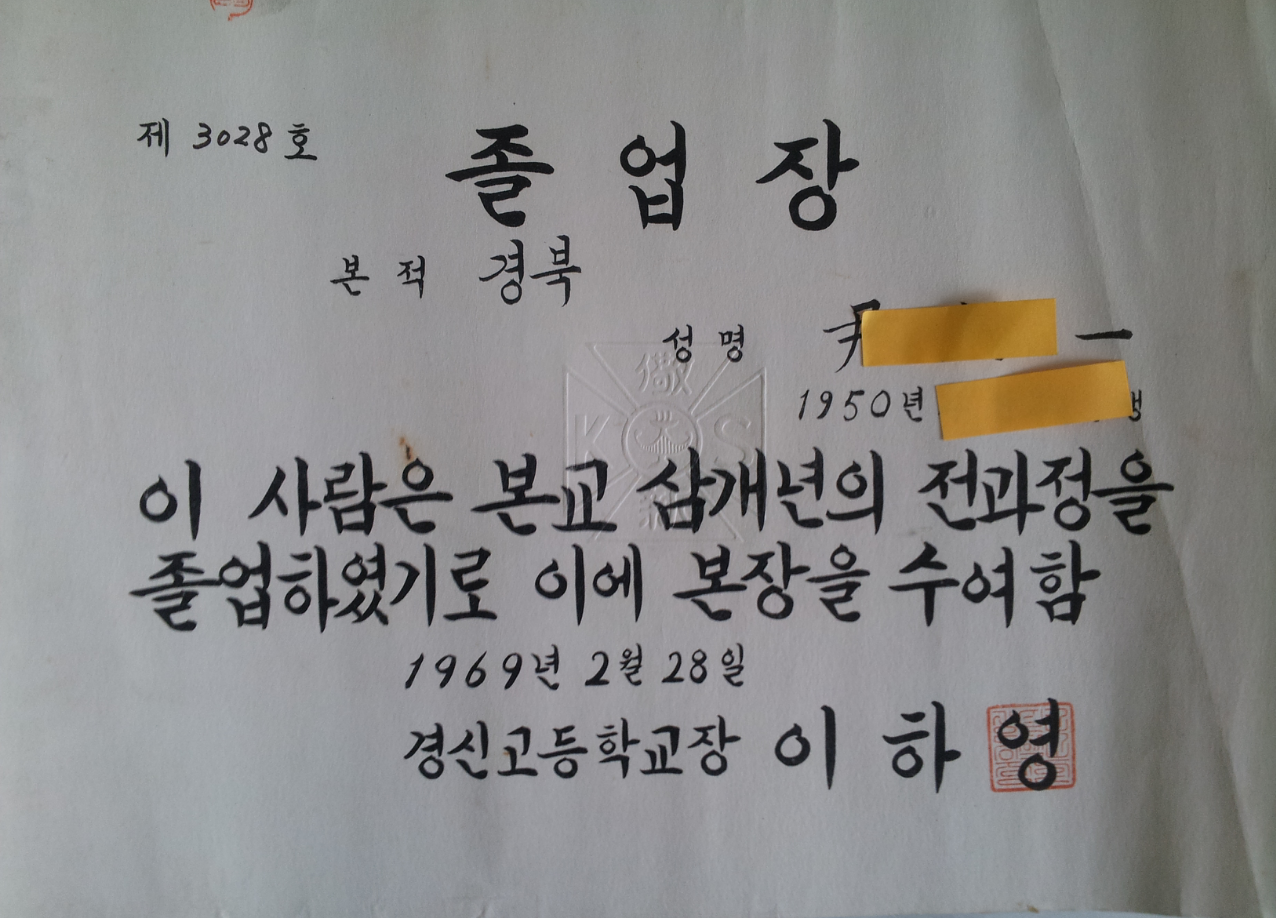 제 3028 호
졸 업 장
본 적 경북
성 명 尹 一
1950년
이 사람은 본교 삼개년의 전과정을
졸업하였기로 이에 본장을 수여함
1969년 2월 28일
경신고등학교장 이 하 영
儆
K S